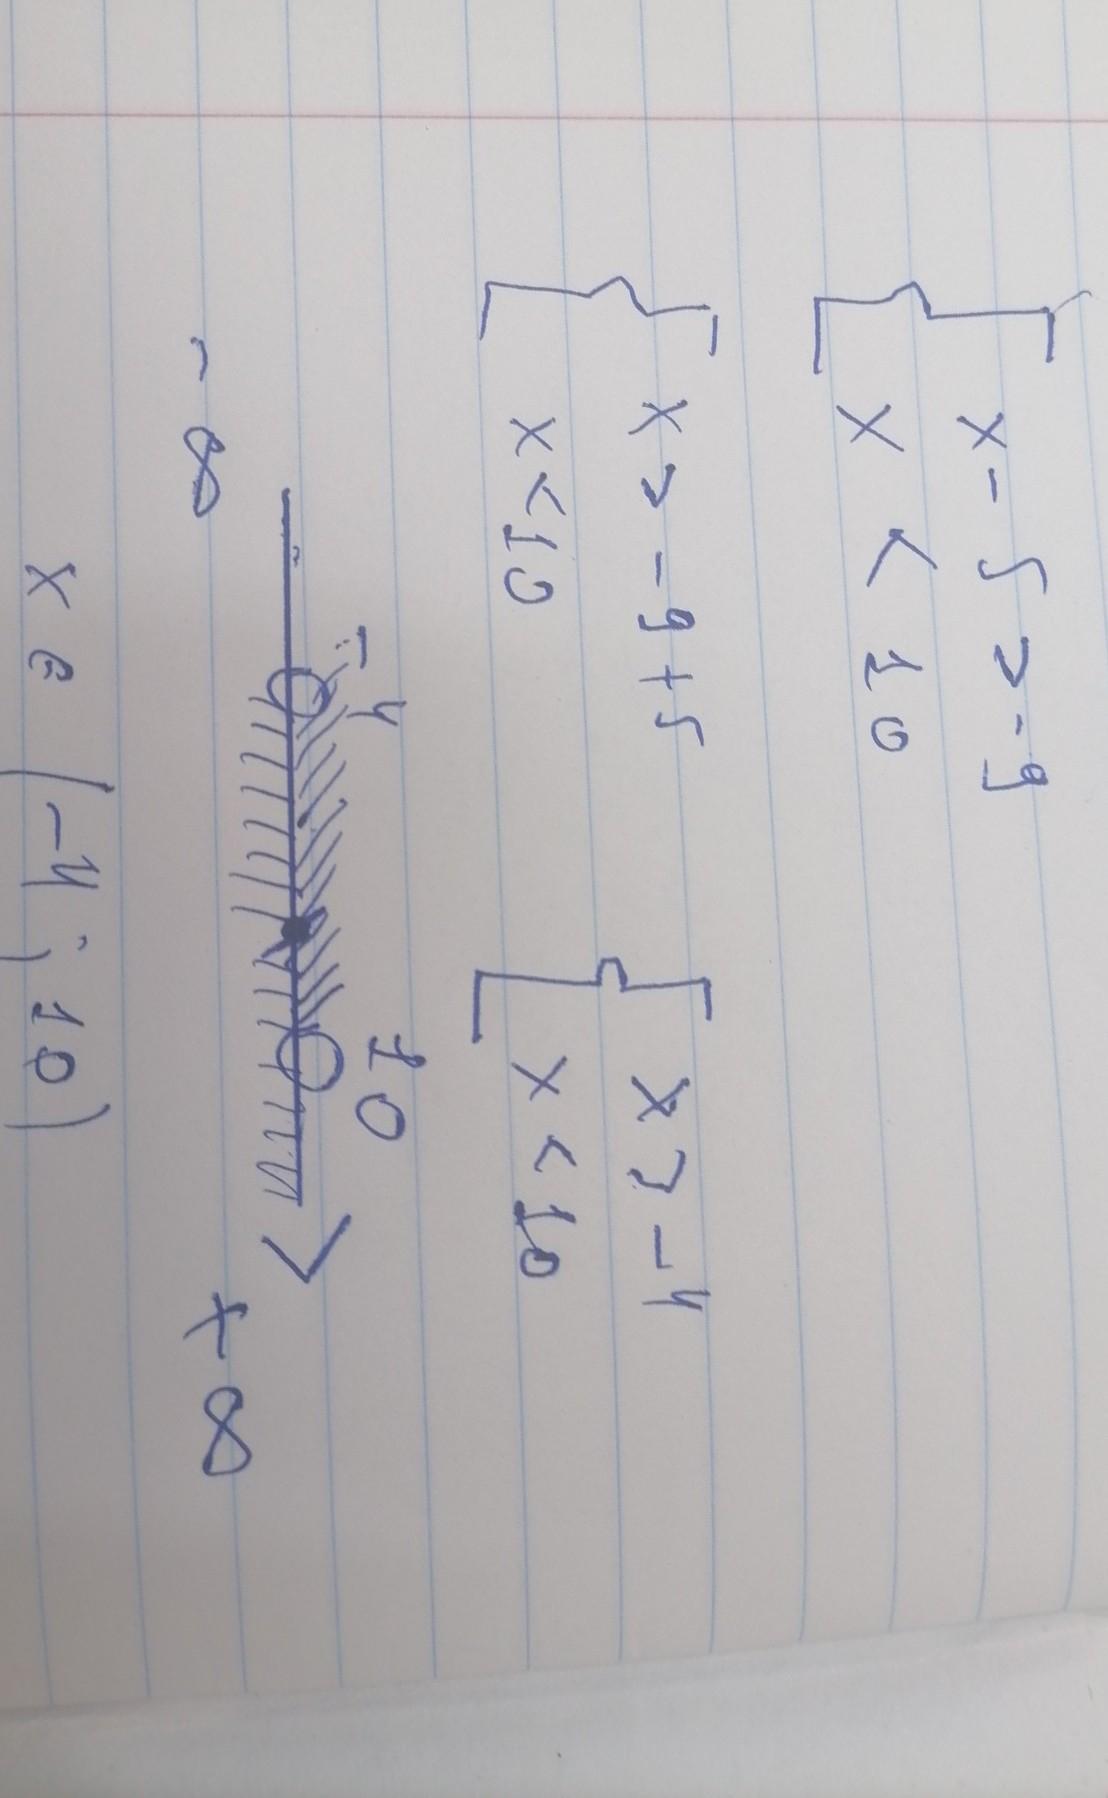 { x - 5 > -9
x < 10
{ x > -9+5
x < 10
{ x > -4
x < 10
-4 10
-∞ +∞
x ∈ (-4; 10)